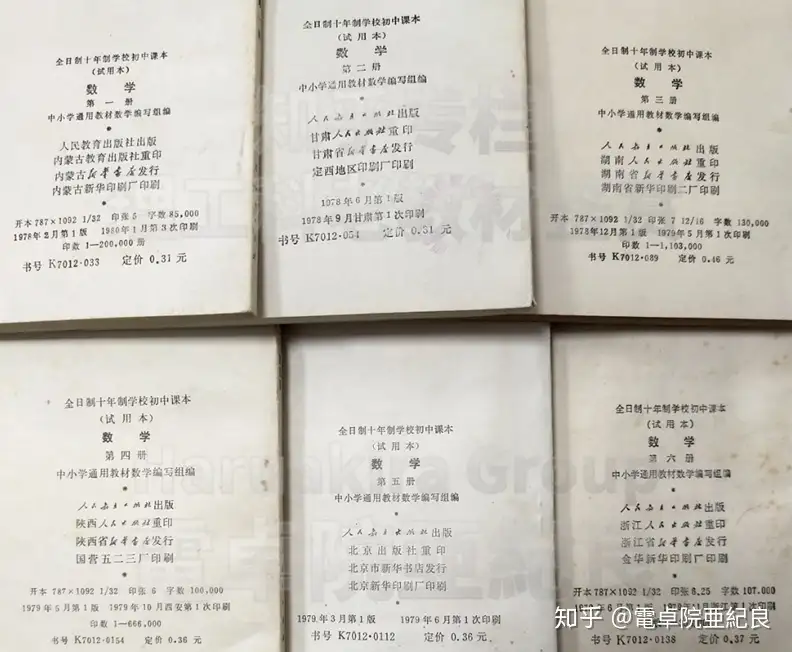 全日制十年制学校初中课本
（试用本）
数 学
第一册
中小学通用教材数学编写组编
人民教育出版社出版
内蒙古教育出版社重印
内蒙古新华书店发行
内蒙古新华印刷厂印刷
开本 787×1092 1/32 印张 5 字数 85,000
1978年2月第1版 1980年1月第3次印刷
印数 1—200,000 册
书号 K7012·033 定价 0.31 元
全日制十年制学校初中课本
（试用本）
数 学
第二册
中小学通用教材数学编写组编
人民教育出版社出版
甘肃人民出版社重印
甘肃省新华书店发行
定西地区印刷厂印刷
1978年6月第1版
1978年9月甘肃第1次印刷
书号 K7012·054 定价 0.31 元
全日制十年制学校初中课本
（试用本）
数 学
第三册
中小学通用教材数学编写组编
人民教育出版社出版
湖南人民出版社重印
湖南省新华书店发行
湖南省新华印刷二厂印刷
开本 787×1092 1/32 印张 7 12/16 字数 130,000
1978年12月第1版 1979年5月第1次印刷
印数 1—1,103,000
书号 K7012·089 定价 0.46 元
全日制十年制学校初中课本
（试用本）
数 学
第四册
中小学通用教材数学编写组编
人民教育出版社出版
陕西人民出版社重印
陕西省新华书店发行
国营五二三厂印刷
开本 787×1092 1/32 印张 6 字数 100,000
1979年5月第1版 1979年10月西安第1次印刷
印数 1—666,000
书号 K7012·0154 定价 0.36 元
全日制十年制学校初中课本
（试用本）
数 学
第五册
中小学通用教材数学编写组编
人民教育出版社出版
北京出版社重印
北京市新华书店发行
北京新华印刷厂印刷
1979年3月第1版 1979年6月第1次印刷
书号 K7012·0112 定价 0.36 元
全日制十年制学校初中课本
（试用本）
数 学
第六册
中小学通用教材数学编写组编
人民教育出版社出版
浙江人民出版社重印
浙江省新华书店发行
金华新华印刷厂印刷
开本 787×1092 1/32 印张 6.25 字数 107,000
1979年6月
书号 K7012·0138 定价 0.37 元
Haruakira Group
電卓院亜紀良
知乎 @電卓院亜紀良